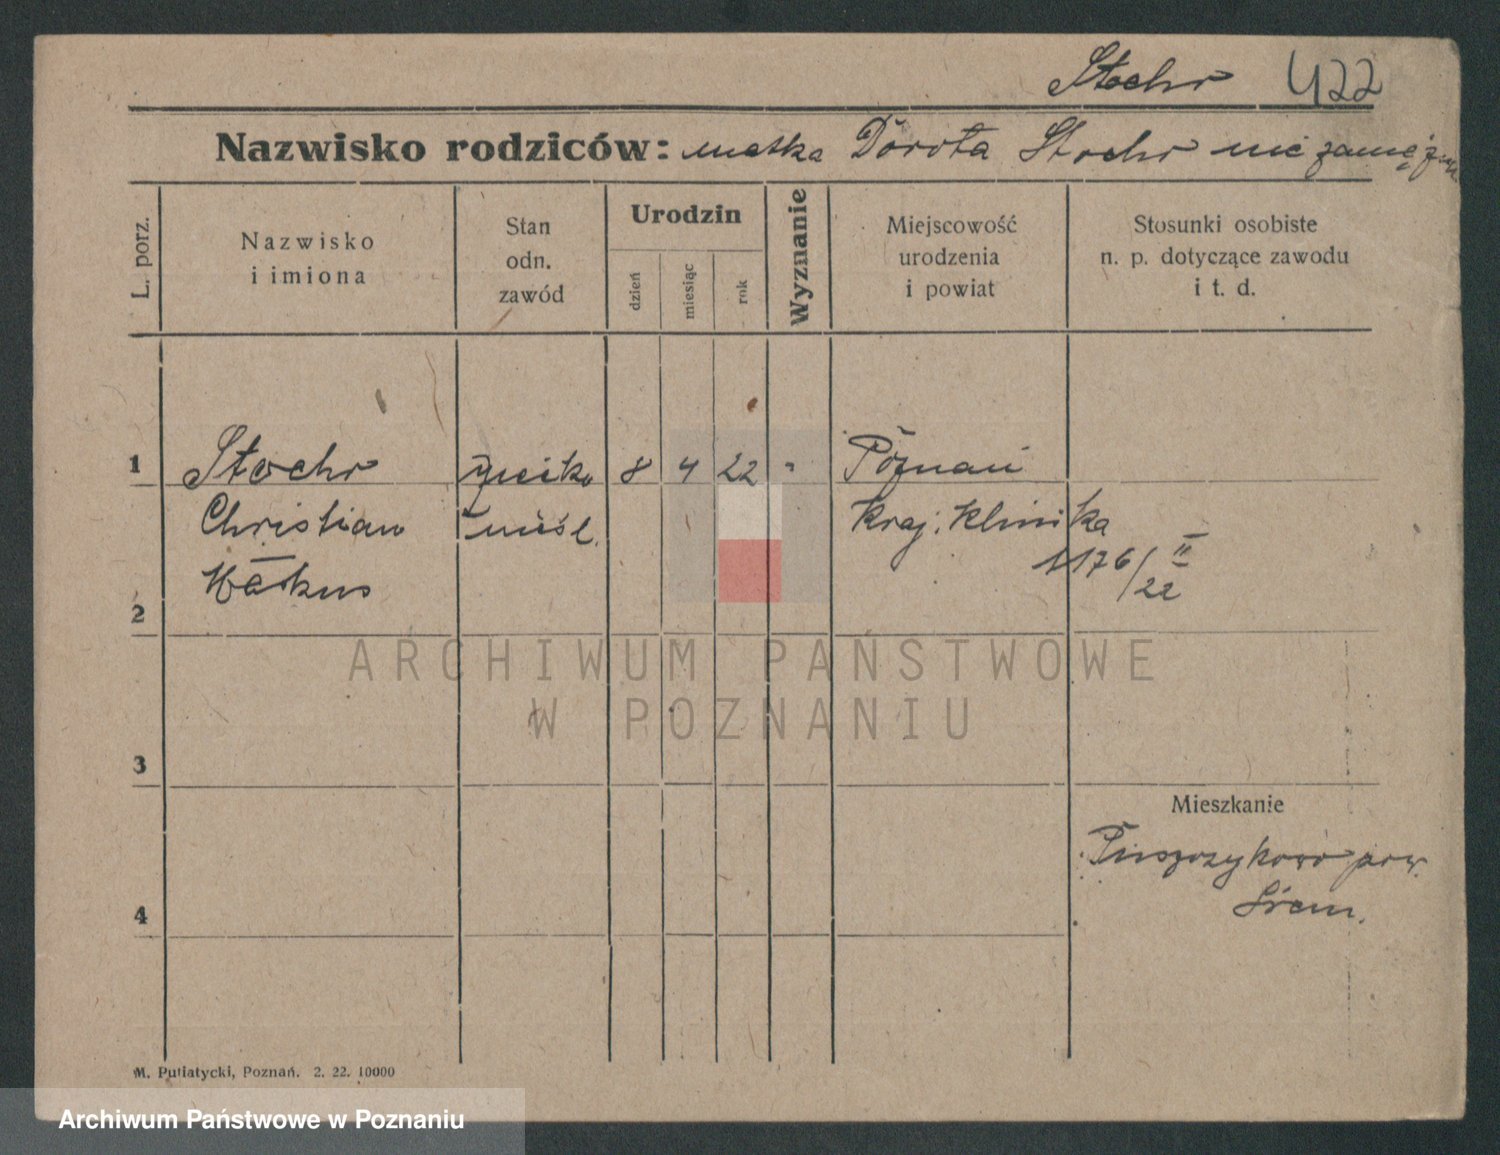 Stochr 422
Nazwisko rodziców: matka Dorota Stochr nie zamężna
L. porz.
Nazwisko
i imiona
Stan
odn.
zawód
Urodzin
dzień
miesiąc
rok
Wyznanie
Miejscowość
urodzenia
i powiat
Stosunki osobiste
n. p. dotyczące zawodu
i t. d.
1 Stochr 8 4 22 " Poznań
Christian nieśl. Kraj. Klinika
1176/II
22
2
3
Mieszkanie
Puszczykowo pow.
Śrem.
4
M. Putiatycki, Poznań. 2. 22. 10000
ARCHIWUM PAŃSTWOWE
W POZNANIU
Archiwum Państwowe w Poznaniu